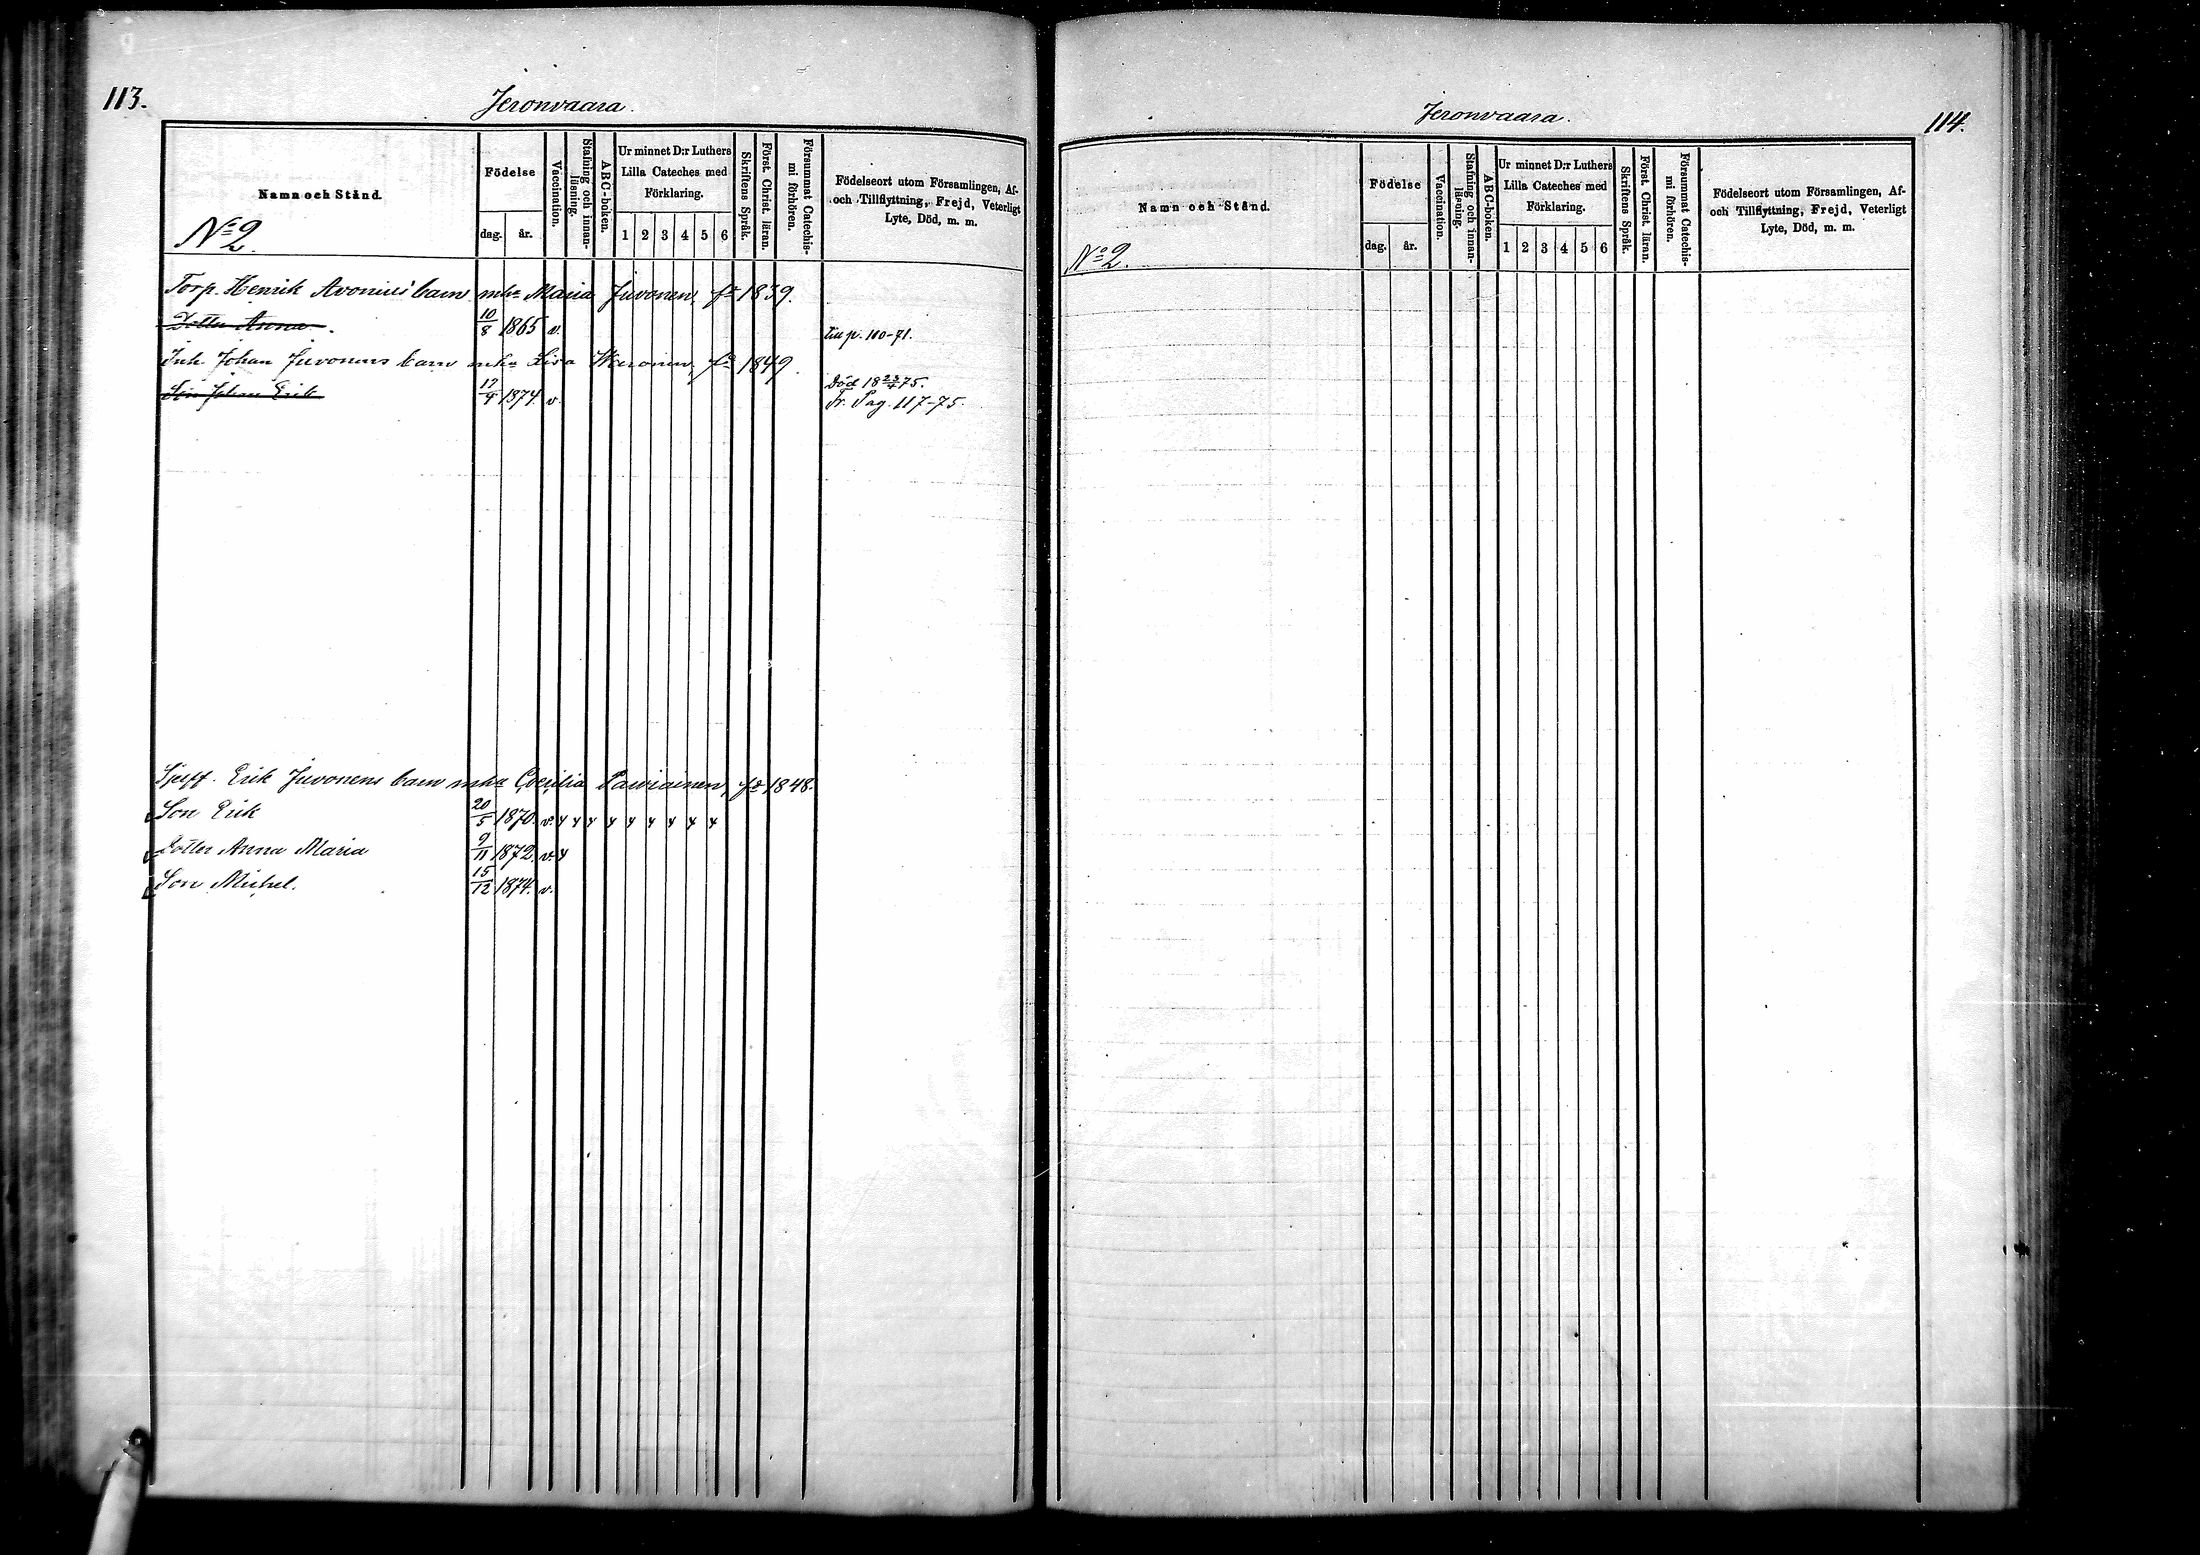 113.
Jeronvaara.
Namn och Stånd.
Födelse
dag. år.
Vaccination.
Stafning och innanläsning.
ABC-boken.
Ur minnet D:r Luthers
Lilla Cateches med
Förklaring.
1 2 3 4 5 6
Skriftens Språk.
Först. Christ. läran.
Försummat Catechismi förhören.
Födelseort utom Församlingen, Af-
och Tillflyttning, Frejd, Veterligt
Lyte, Död, m. m.
No 2.
Torp. Henrik Avonius barn mha Maria Juvonen, fd 1839.
Dotter Anna. 10/8 1865 v. till p. 110-71.
Inh. Johan Juvonens barn mha Lisa fd 1849.
Son Johan Erik 17/9 1874. v. Död 18 23/4 75.
Fr. Pag. 117-75.
Erik Juvonens barn mha Cecilia Parviainen, fd 1848.
Son Erik 20/5 1870. v. y y y y y y y y y
Dotter Anna Maria 9/11 1872. v. y
Son Michel. 15/12 1874. v.
114.
Jeronvaara.
Namn och Stånd.
Födelse
dag. år.
Vaccination.
Stafning och innanläsning.
ABC-boken.
Ur minnet D:r Luthers
Lilla Cateches med
Förklaring.
1 2 3 4 5 6
Skriftens Språk.
Först. Christ. läran.
Försummat Catechismi förhören.
Födelseort utom Församlingen, Af-
och Tillflyttning, Frejd, Veterligt
Lyte, Död, m. m.
No 2.